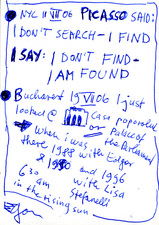 NYC 11 VII 06 PICASSO SAID:
I DON'T SEARCH - I FIND
I SAY: I DON'T FIND -
I AM FOUND
Bucharest 19 VII 06 I just
looked @ Casa poporului
or Palace of
the Parliament
When I was
there 1988 with Edgar
& 1990 and 1996
6:30 am with Lisa
Stefanelli
in the rising sun